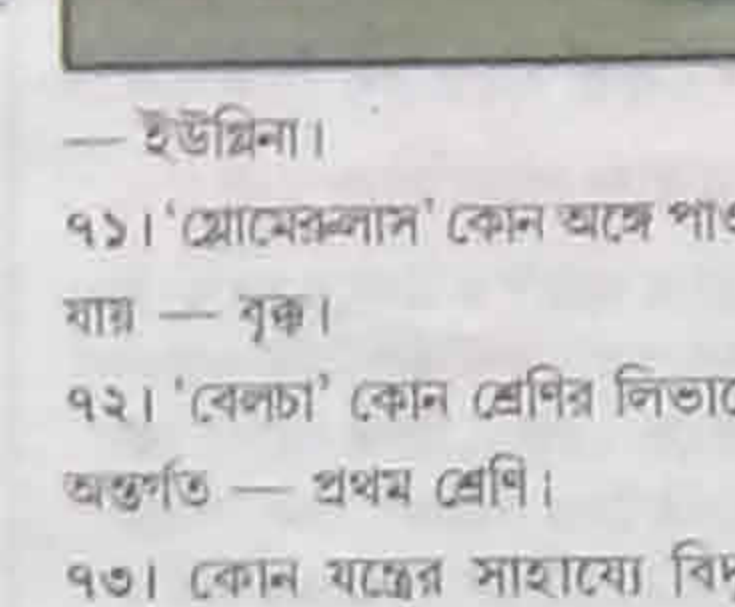 — ইউগ্লিনা।
৭১। ‘গ্লোমেরুলাস’ কোন অঙ্গে
যায় — বৃক্ক।
৭২। ‘বেলচা’ কোন শ্রেণির
অন্তর্গত — প্রথম শ্রেণি।
৭৩। কোন যন্ত্রের সাহায্যে